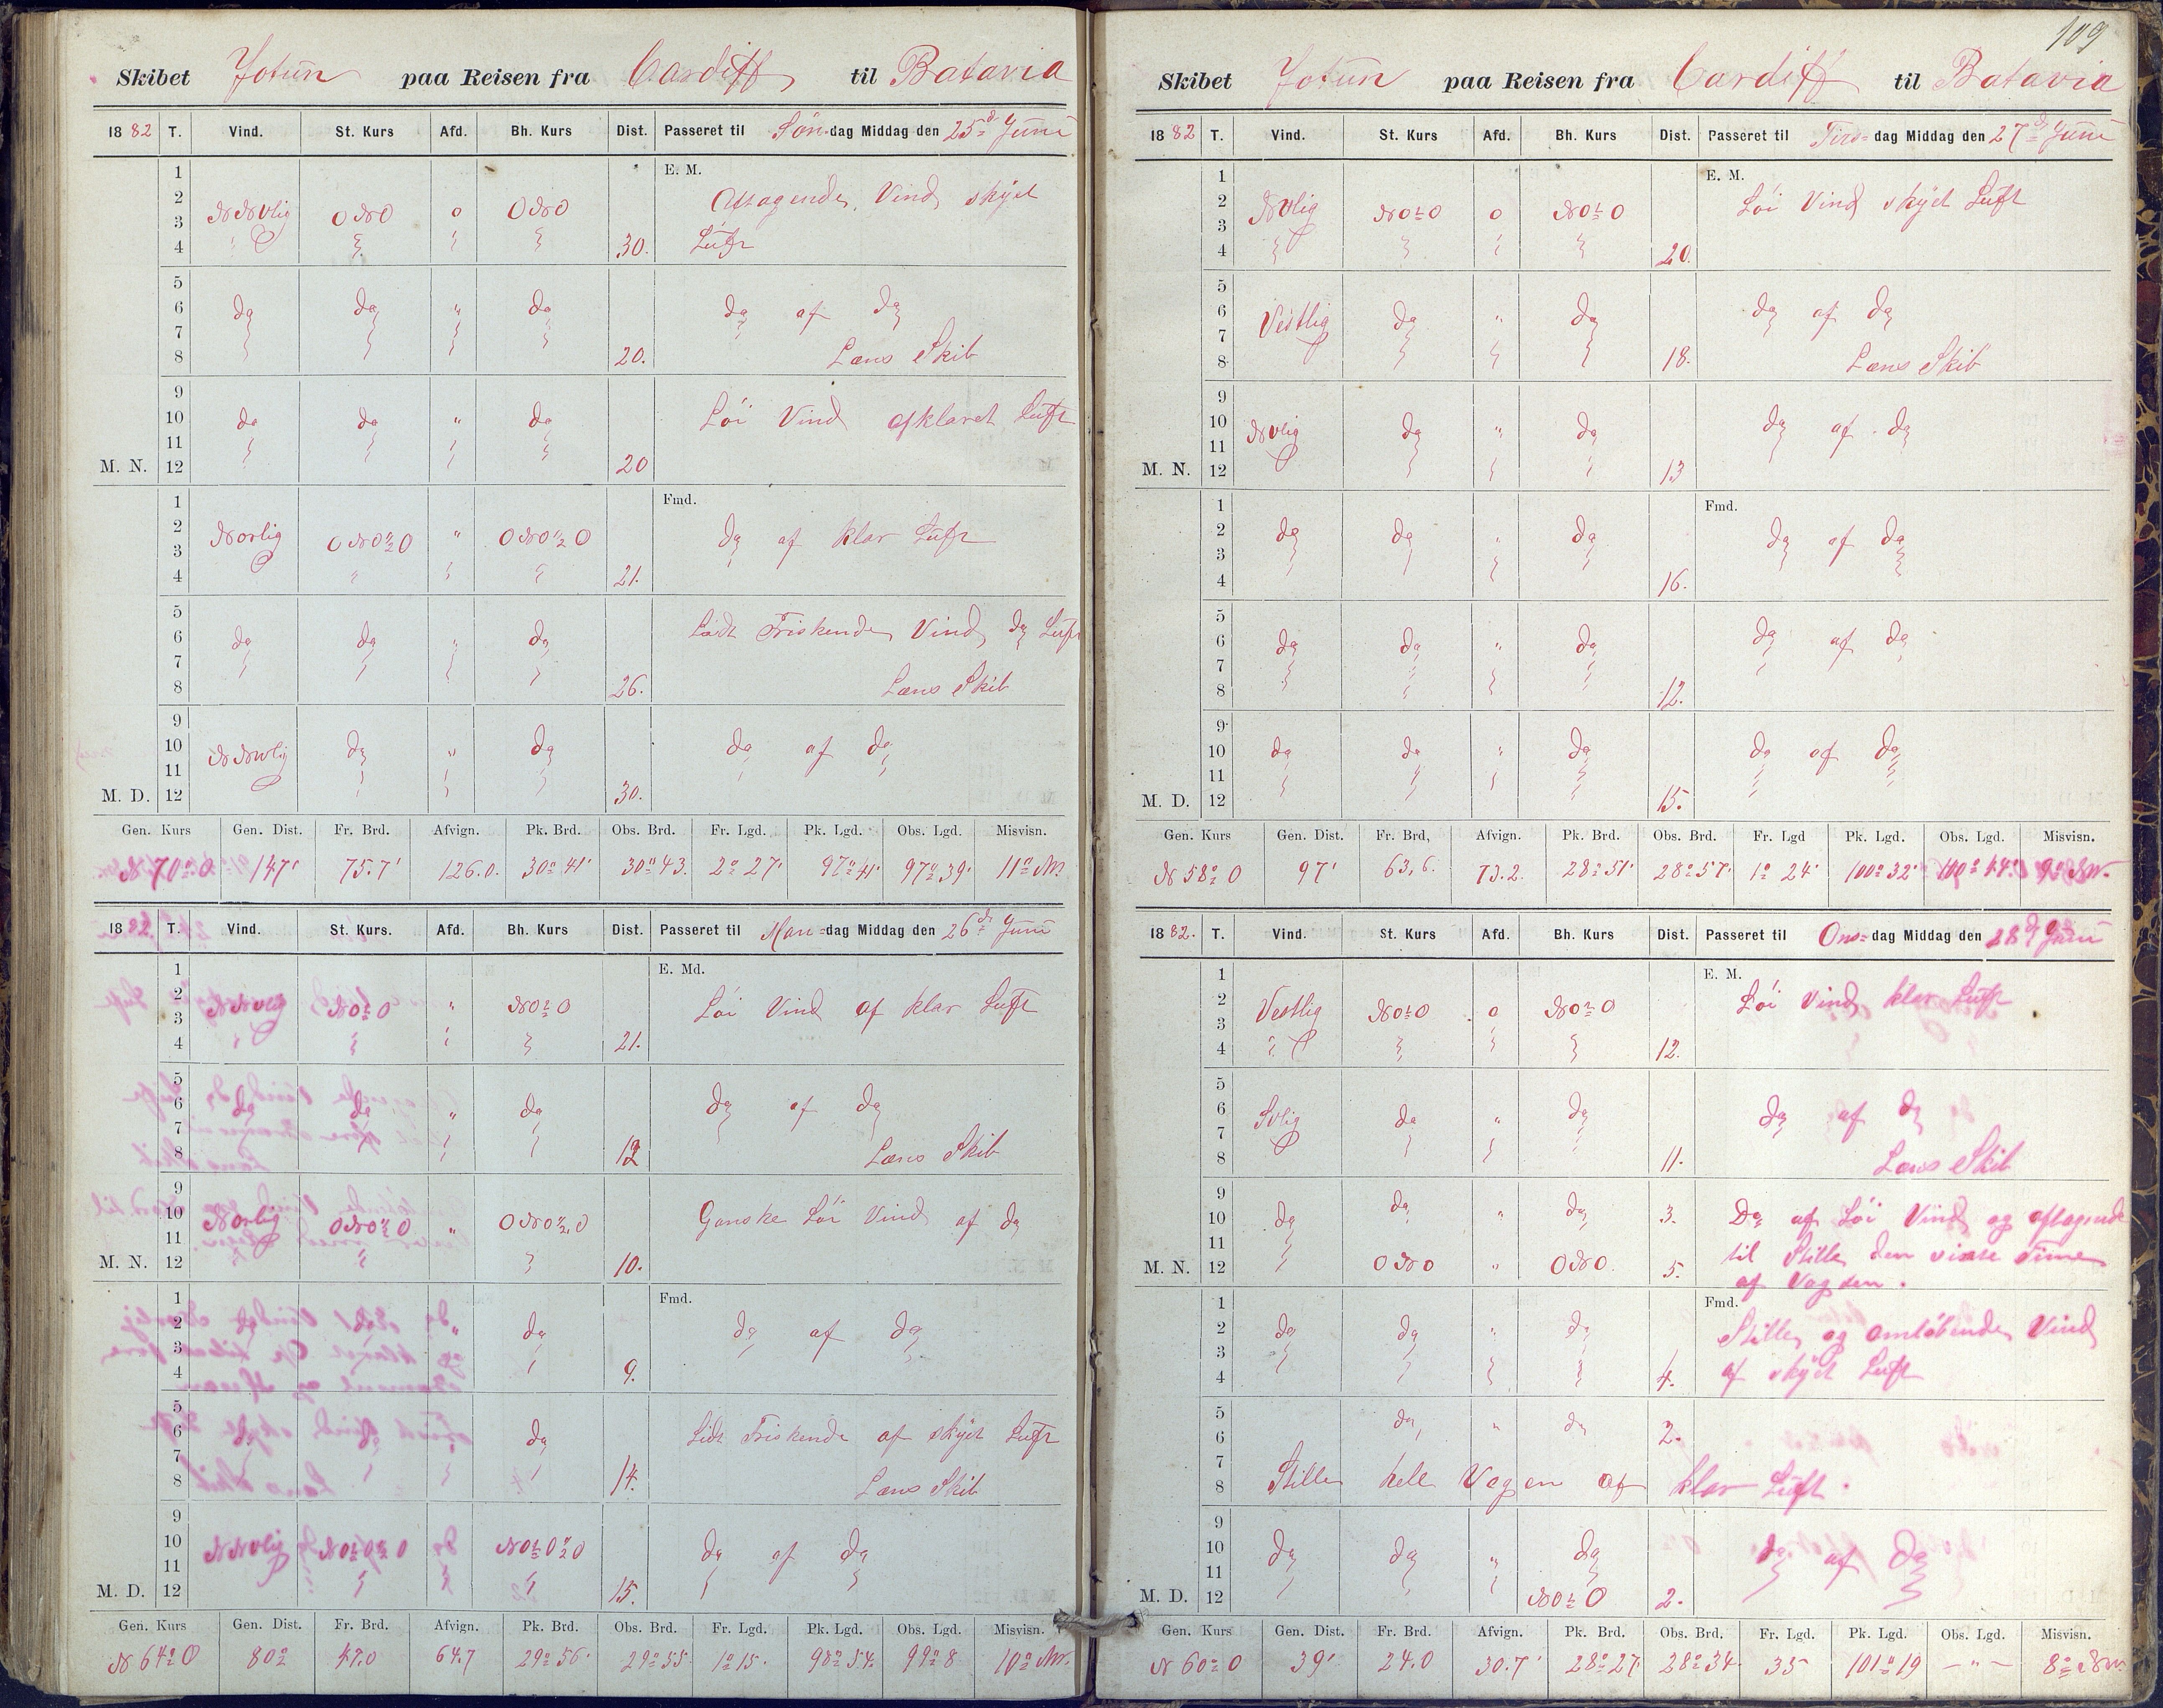 Skibet Jotun paa Reisen fra Cardiff til Batavia
1882 T. Vind. St. Kurs Afd. Bh. Kurs Dist. Passeret til Søn-dag Middag den 25d Juni
1 E. M.
2 NNvlig ONO o ONO Aftagende Vind skyet
3
4 30. Luft
5
6 do do " do do af do
7
8 20. Læns Skib
9
10 do do " do Löi Vind afklaret Luft
11
M. N. 12 20
1 Fmd.
2 Norlig ONO½O " ONO½O do af klar Luft
3
4 21.
5
6 do do " do Lidt Friskende Vind do Luft
7
8 26. Læns Skib
9
10 NNvlig do " do do af do
11
M. D. 12 30.
Gen. Kurs Gen. Dist. Fr. Brd. Afvign. Pk. Brd. Obs. Brd. Fr. Lgd. Pk. Lgd. Obs. Lgd. Misvisn.
N 70° O 147' 75.7' 126.0. 30° 41' 30° 43. 2° 27' 97° 41' 97° 39' 11° NW
1882 T. Vind. St. Kurs. Afd. Bh. Kurs Dist. Passeret til Man-dag Middag den 26d Juni
1 E. Md.
2 NNvlig NOtO " NOtO Löi Vind af klar Luft
3
4 21.
5
6 do do " do do af do
7
8 12 Læns Skib
9
10 Norlig ONO½O " ONO½O Ganske Löi Vind af do
11
M. N. 12 10.
1 Fmd.
2 do do " do do af do
3
4 9.
5
6 do do do Lidt Friskende af skyet Luft
7
8 14. Læns Skib
9
10 NNvlig NOtO½O NOtO½O do af do
11
M. D. 12 15.
Gen. Kurs Gen. Dist. Fr. Brd. Afvign. Pk. Brd. Obs. Brd. Fr. Lgd. Pk. Lgd. Obs. Lgd. Misvisn.
N 64° O 80 47.0 64.7 29° 56' 29° 55' 1° 15. 98° 54. 99° 8 10° NW.
109
Skibet Jotun paa Reisen fra Cardiff til Batavia
1882 T. Vind. St. Kurs Afd. Bh. Kurs Dist. Passeret til Tirs-dag Middag den 27d Juni
1 E. M.
2 Nvlig NOtO o NOtO Löi Vind skyet Luft
3
4 20.
5
6 Vestlig do " do do af do
7
8 18. Læns Skib
9
10 Nvlig do " do do af do
11
M. N. 12 13
1 Fmd.
2 do do " do do af do
3
4 16.
5
6 do do " do do af do
7
8 12.
9
10 do do " do do af do
11
M. D. 12 15.
Gen. Kurs Gen. Dist. Fr. Brd, Afvign. Pk. Brd. Obs. Brd. Fr. Lgd Pk. Lgd. Obs. Lgd. Misvisn.
N 58° O 97' 63,6. 73.2. 28° 51' 28° 57' 1° 24' 100° 32' 100° 44' 9° NW.
1882. T. Vind. St. Kurs Afd. Bh. Kurs Dist. Passeret til Ons-dag Middag den 28d Juni
1 E. M.
2 Vestlig NOtO o NOtO Löi Vind klar Luft
3
4 12.
5
6 Svlig do " do do af do
7
8 11. Læns Skib
9
10 do do " do 3. Do af Löi Vind og aftagende
11 til Stille den
M. N. 12 ONO " ONO 5. af Vagden.
1 Fmd.
2 do do " do Stille og omløbende Vind
3
4 4. af skyet Luft
5 do " do 2.
6
7
8 Stille hele Vagen af klar Luft.
9
10 do do " do do af do
11
M. D. 12 NOtO 2.
Gen. Kurs Gen. Dist. Fr. Brd. Afvign. Pk. Brd. Obs. Brd. Fr. Lgd. Pk. Lgd. Obs. Lgd. Misvisn.
N 60° O 39' 24.0 30.7' 28° 27' 28° 34. 35 101° 19 — " — 8° NW